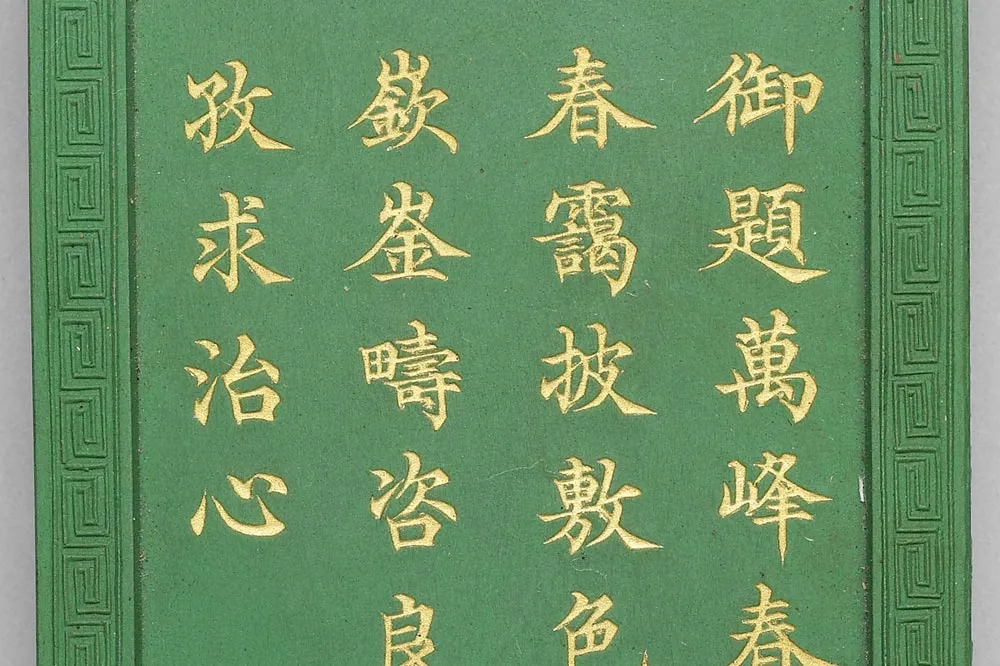 御題萬峰春
春靄披敷色
嶔崟疇咨良
孜求治心